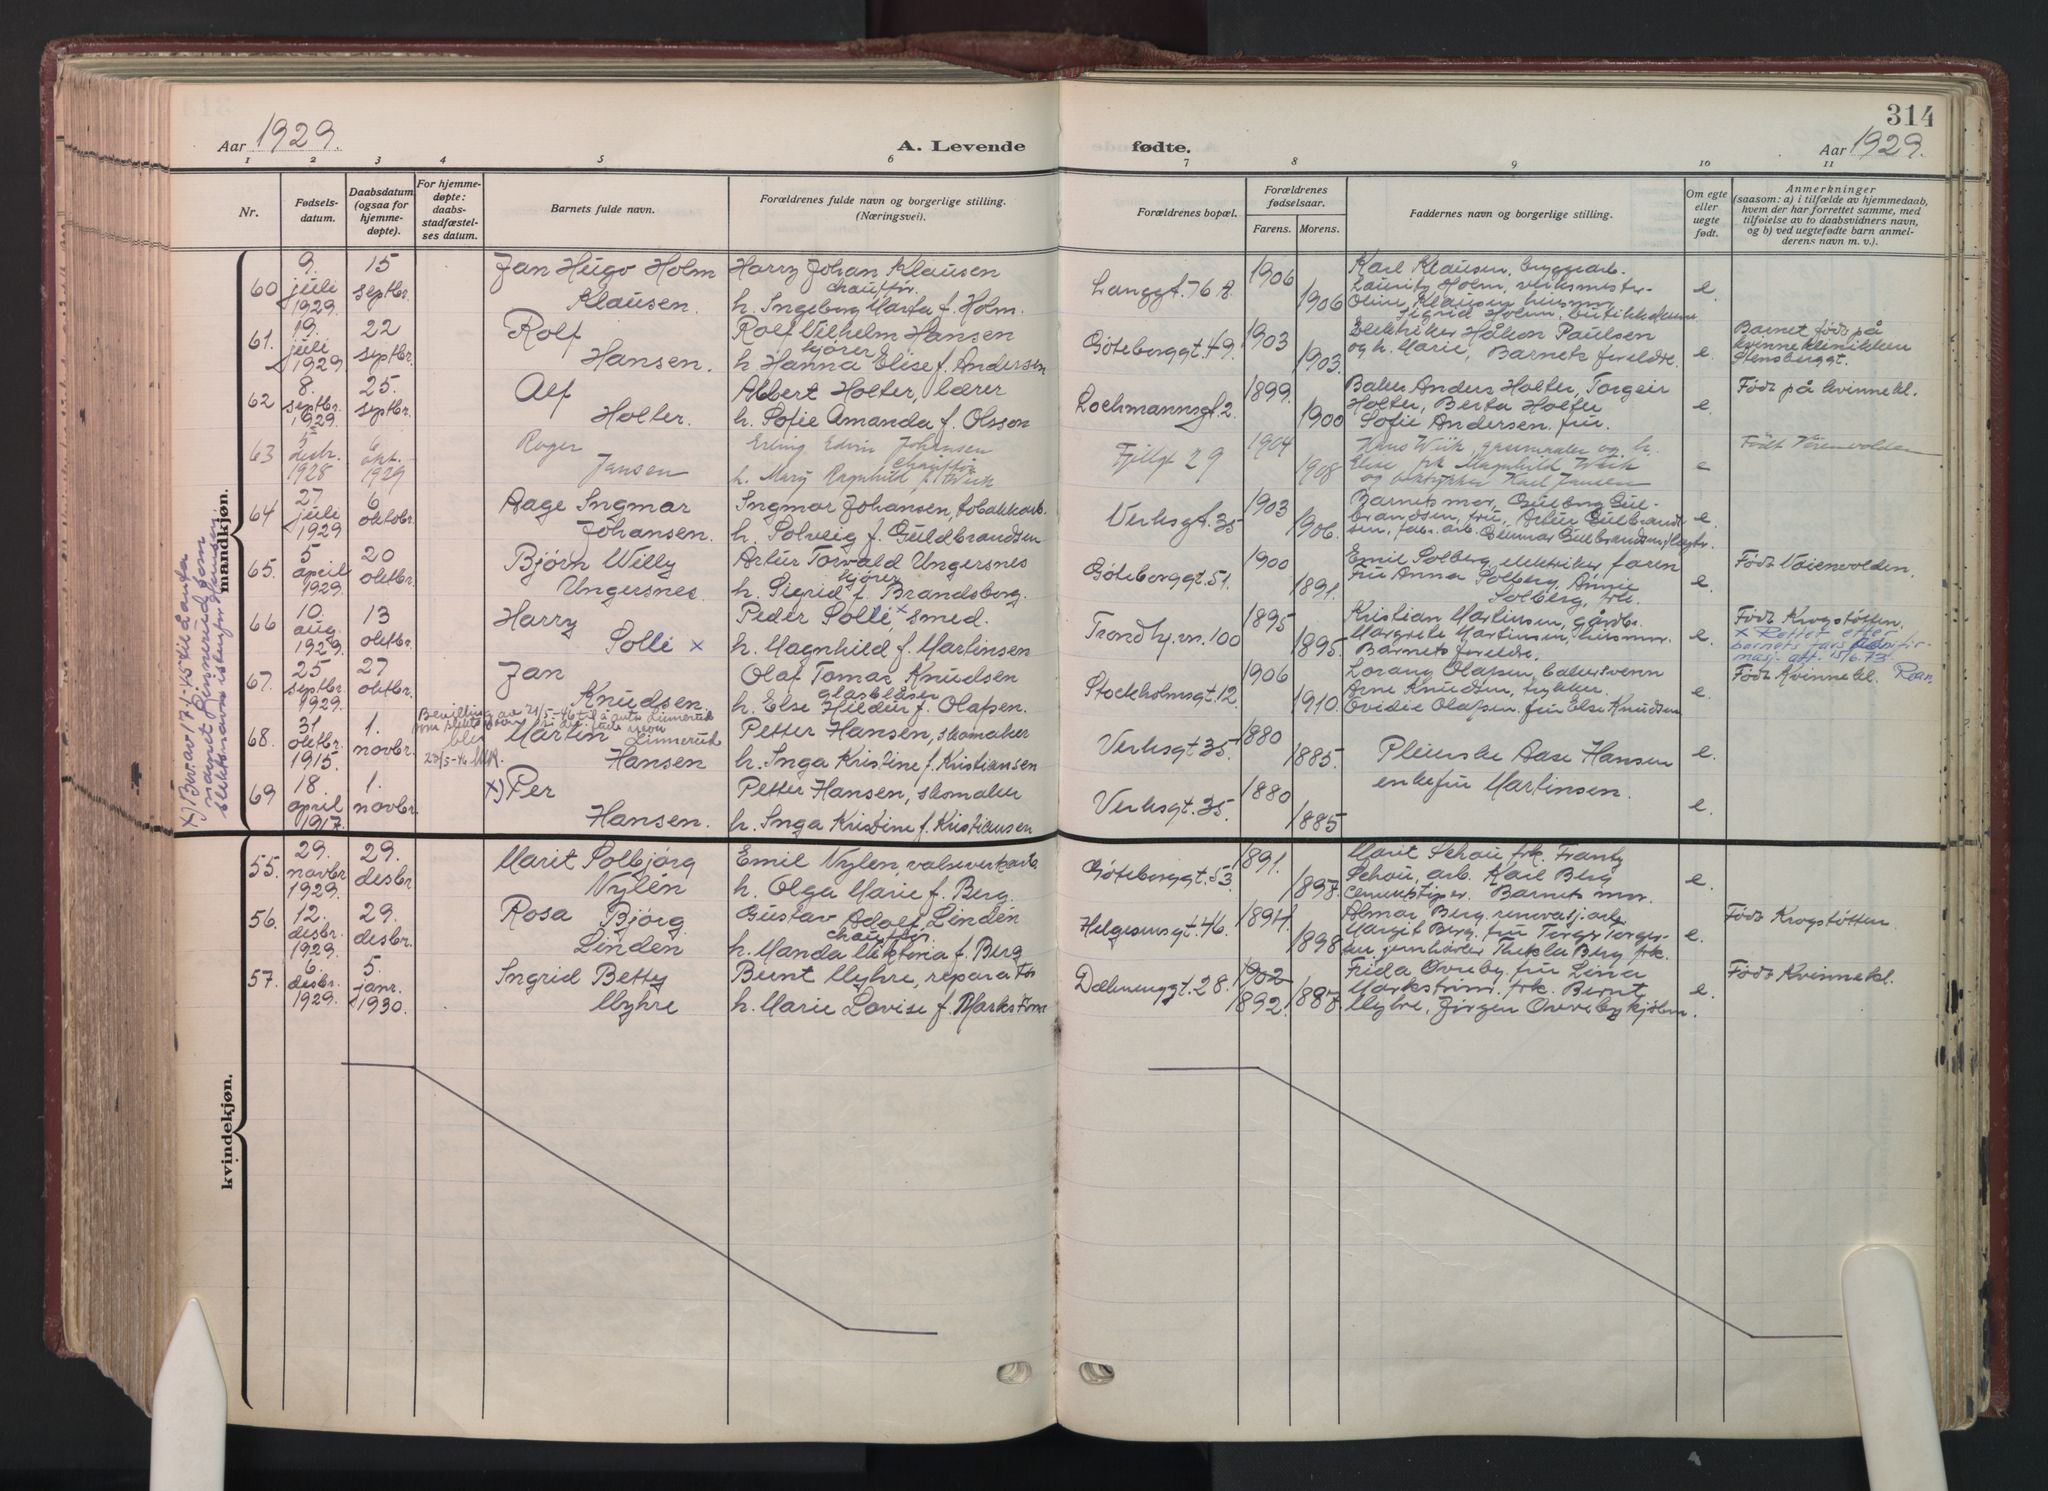 314
Aar 1929.
A. Levende
fødte.
Aar 1929.
1 2 3 4 5 6 7 8 9 10 11
Nr.
Fødsels-
datum.
Daabsdatum
(ogsaa for
hjemme-
døpte).
For hjemme-
døpte:
daabs-
stadfæstel-
ses datum.
Barnets fulde navn.
Forældrenes fulde navn og borgerlige stilling.
(Næringsvei).
Forældrenes bopæl.
Forældrenes
fødselsaar.
Farens. Morens.
Faddernes navn og borgerlige stilling.
Om egte
eller
uegte
født.
Anmerkninger
(saasom: a) i tilfælde av hjemmedaab,
hvem der har forrettet samme, med
tilføielse av to daabsvidners navn,
og b) ved uegtefødte barn anmel-
derens navn m. v.).
mandkjøn.
x) Bev. av 17/1-45 til
slektsnavn istenfor Hansen
60
9.
juli
1929.
15
septbr.
Jan Hugo Holm
Klausen.
Harry Johan Klausen
chauffør.
h. Ingeborg Marta f. Holm.
Langgt. 16
1906
1906
Karl Klausen, bryggearb.
Lauritz Holm, verksmester
Oline Klausen husmor
Sigrid Holm, butikkdame
e.
61.
19.
juli
1929
22
septbr.
Rolf
Hansen.
Rolf Vilhelm Hansen
kjører
h. Hanna Elise f. Andersen
Gøteborggt. 49.
1903
1903.
Elektriker Håkon Paulsen
og h. Marie, Barnets foreldre.
e.
Barnet født på
kvinneklinikken
Stensberggt.
62
8.
septbr.
1929.
25.
septbr.
Alf
Holter.
Albert Holter, lærer
h. Sofie Amanda f. Olsson
Lochmannsgt. 2.
1899.
1900
Baker Anders Holter, Torgeir
Holter, Berta Holter
Sofie Andersen fru.
e.
Født på kvinnekl.
63
5
desbr.
1928
6
okt.
1929
Roger
Jansen
Erling Edvin Johansen
chauffør
h. Mary Ragnhild f. Wiik
Fjellgt 29
1904
1908
Hans Wiik og h.
Else frk Magnhild Wiik
og Karl Jansen
e
Født Vøienvolden
64
27
juli
1929
6
oktobr.
Aage Ingmar
Johansen.
Ingmar Johansen, tobakkarb.
h. Solveig f. Guldbrandsen
Verksgt. 35
1903
1906.
Barnets mor, Gulborg Gul-
brandsen, fru, Artur Gulbrand-
sen, fabr. arb. Gunnar Gulbrandsen,
e.
65.
5
april
1929.
20
oktbr.
Bjørn Willy
Ungersnes.
Artur Torvald Ungersnes
kjører
h. Sigrid f. Brandsborg.
Gøteborggt. 51.
1900
1891.
Emil Solberg elektriker, faren
Fru Anna Solberg, Annie
Solberg, fru.
e.
Født Vøienvolden.
66
10.
aug.
1929
13
oktbr.
Harry
Solli x
Peder Solli, x smed.
h. Magnhild f. Martinsen
Trondhj.vn. 100
1895
1895.
Kristian Martinsen, gårdbr.
Margrete Martinsen, husmor.
Barnets foreldre.
e.
Født Krogstøtten.
x Rettet etter
barnets fars
15/6.73
67.
25
septbr.
1929.
27
oktbr.
Jan
Knudsen.
Olaf Tomas Knudsen
glasblåser
h. Else Hildur f. Olafsen.
Stockholmsgt. 12.
1906
1910.
Lorang Olafsen, bakersvenn
Arne Knudsen, trykker.
Ovidie Olafsen fru Else Knudsen
e.
Født Kvinnekl.
68.
31
oktbr.
1915.
1.
novbr.
Bevilling av 21/5-46 til å anta Linnerud
som slektsnavn
23/5-46
Martin Linnerud
Hansen
Petter Hansen, skomaker
h. Inga Kristine f. Kristiansen
Verksgt. 35.
1880
1885.
Pleierske Aase Hansen
enkefru Martinsen.
e.
69
18.
april
1917.
1.
novbr.
x) Per
Hansen.
Petter Hansen, skomaker
h. Inga Kristine f. Kristiansen
Verksgt. 35.
1880
1885
e.
kvindekjøn.
55.
29.
novbr
1929.
29.
desbr
Marit Solbjørg
Nylén
Emil Nylén, valseverkarb.
h. Olga Marie f. Berg.
Gøteborggt. 53.
1891.
1897.
Marit Schou frk. Frantz
Schou, arb. Karl Berg
Barnets mor.
e.
56.
12.
desbr.
1929.
29.
desbr.
Rosa Bjørg
Lindén
Gustav Adolf Lindén
chauffør
h. Manda Viktoria f. Berg
Helgesensgt. 46.
1894.
1898
Almar Berg renovasj.arb.
Margit Berg. fru Torger Torger-
sen Thekla Berg frk.
e.
Født Krogstøtten
57.
6.
desbr.
1929.
5.
janr.
1930.
Ingrid Betty
Myhre
Bernt Myhre, reparatør
h. Marie Lovise f. Markstrøm
Dælenenggt. 28.
1902
1892
1887.
Frida Overby. fru Lina
Markstrøm. frk. Bernt
Myhre, Jørgen Overby kjøbm.
e.
Født Kvinnekl.